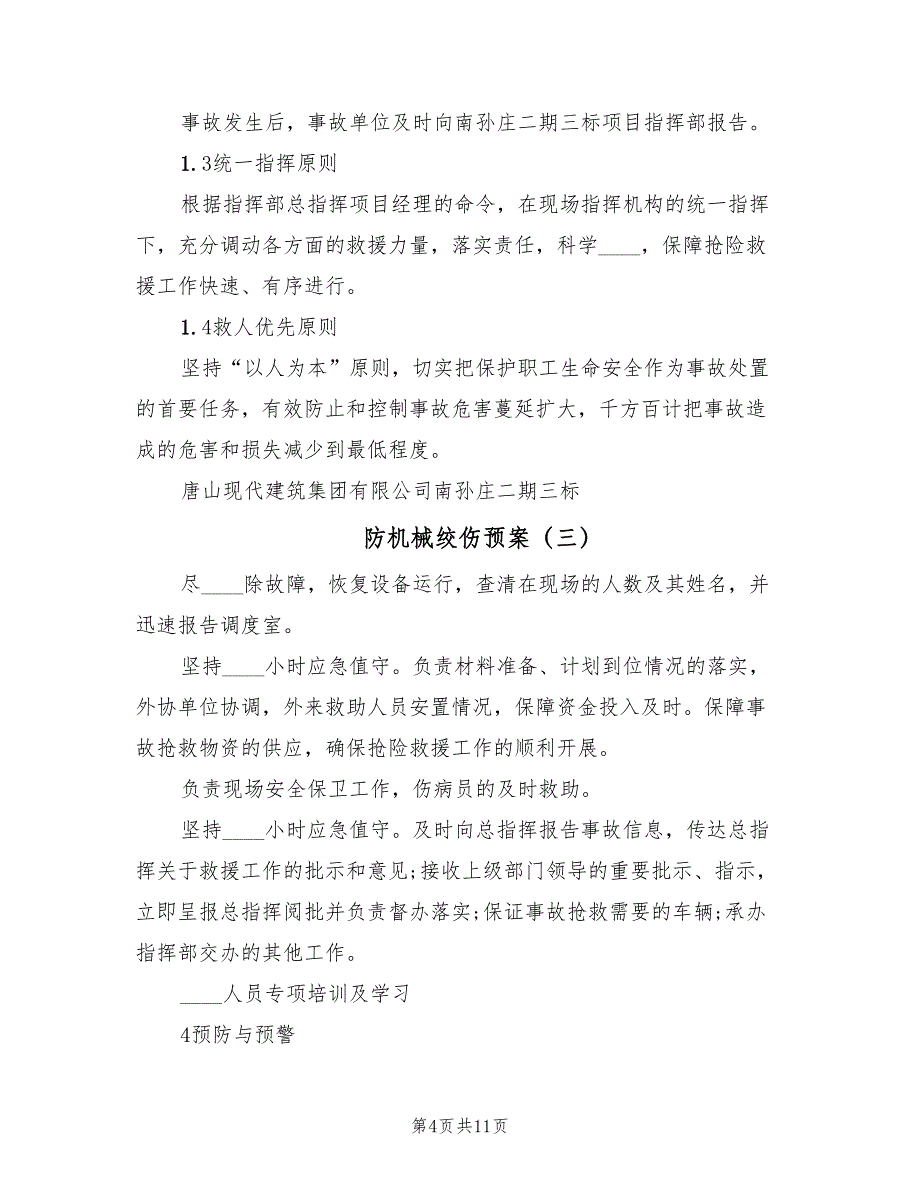 事故发生后，事故单位及时向南孙庄二期三标项目指挥部报告。
1.3统一指挥原则
根据指挥部总指挥项目经理的命令，在现场指挥机构的统一指挥
下，充分调动各方面的救援力量，落实责任，科学____，保障抢险救
援工作快速、有序进行。
1.4救人优先原则
坚持“以人为本”原则，切实把保护职工生命安全作为事故处置
的首要任务，有效防止和控制事故危害蔓延扩大，千方百计把事故造
成的危害和损失减少到最低程度。
唐山现代建筑集团有限公司南孙庄二期三标
防机械绞伤预案（三）
尽____除故障，恢复设备运行，查清在现场的人数及其姓名，并
迅速报告调度室。
坚持____小时应急值守。负责材料准备、计划到位情况的落实，
外协单位协调，外来救助人员安置情况，保障资金投入及时。保障事
故抢救物资的供应，确保抢险救援工作的顺利开展。
负责现场安全保卫工作，伤病员的及时救助。
坚持____小时应急值守。及时向总指挥报告事故信息，传达总指
挥关于救援工作的批示和意见;接收上级部门领导的重要批示、指示，
立即呈报总指挥阅批并负责督办落实;保证事故抢救需要的车辆;承办
指挥部交办的其他工作。
____人员专项培训及学习
4预防与预警
第4页共11页